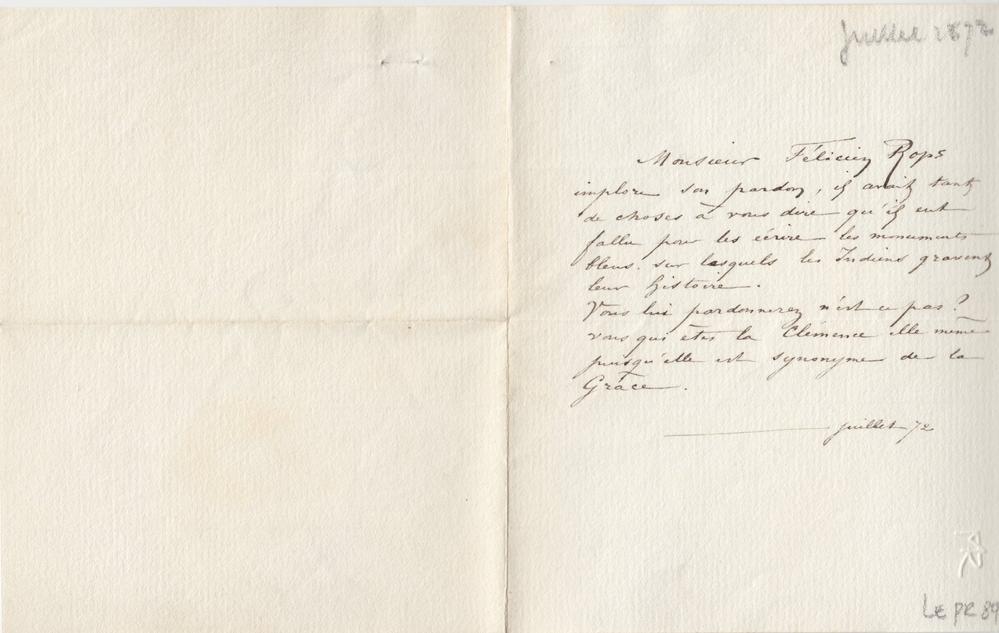 Juillet 1872
Monsieur Félicien Rops
implore son pardon, il avait tant
de choses à vous dire qu'il eut
fallu pour les écrire les monuments
bleus. sur lesquels les Indiens gravent
leur histoire.
Vous lui pardonnerez n'est ce pas?
vous qui êtes la Clémence elle même
puisqu'elle est synonyme de la
Grâce.
juillet 72
LEPR 89